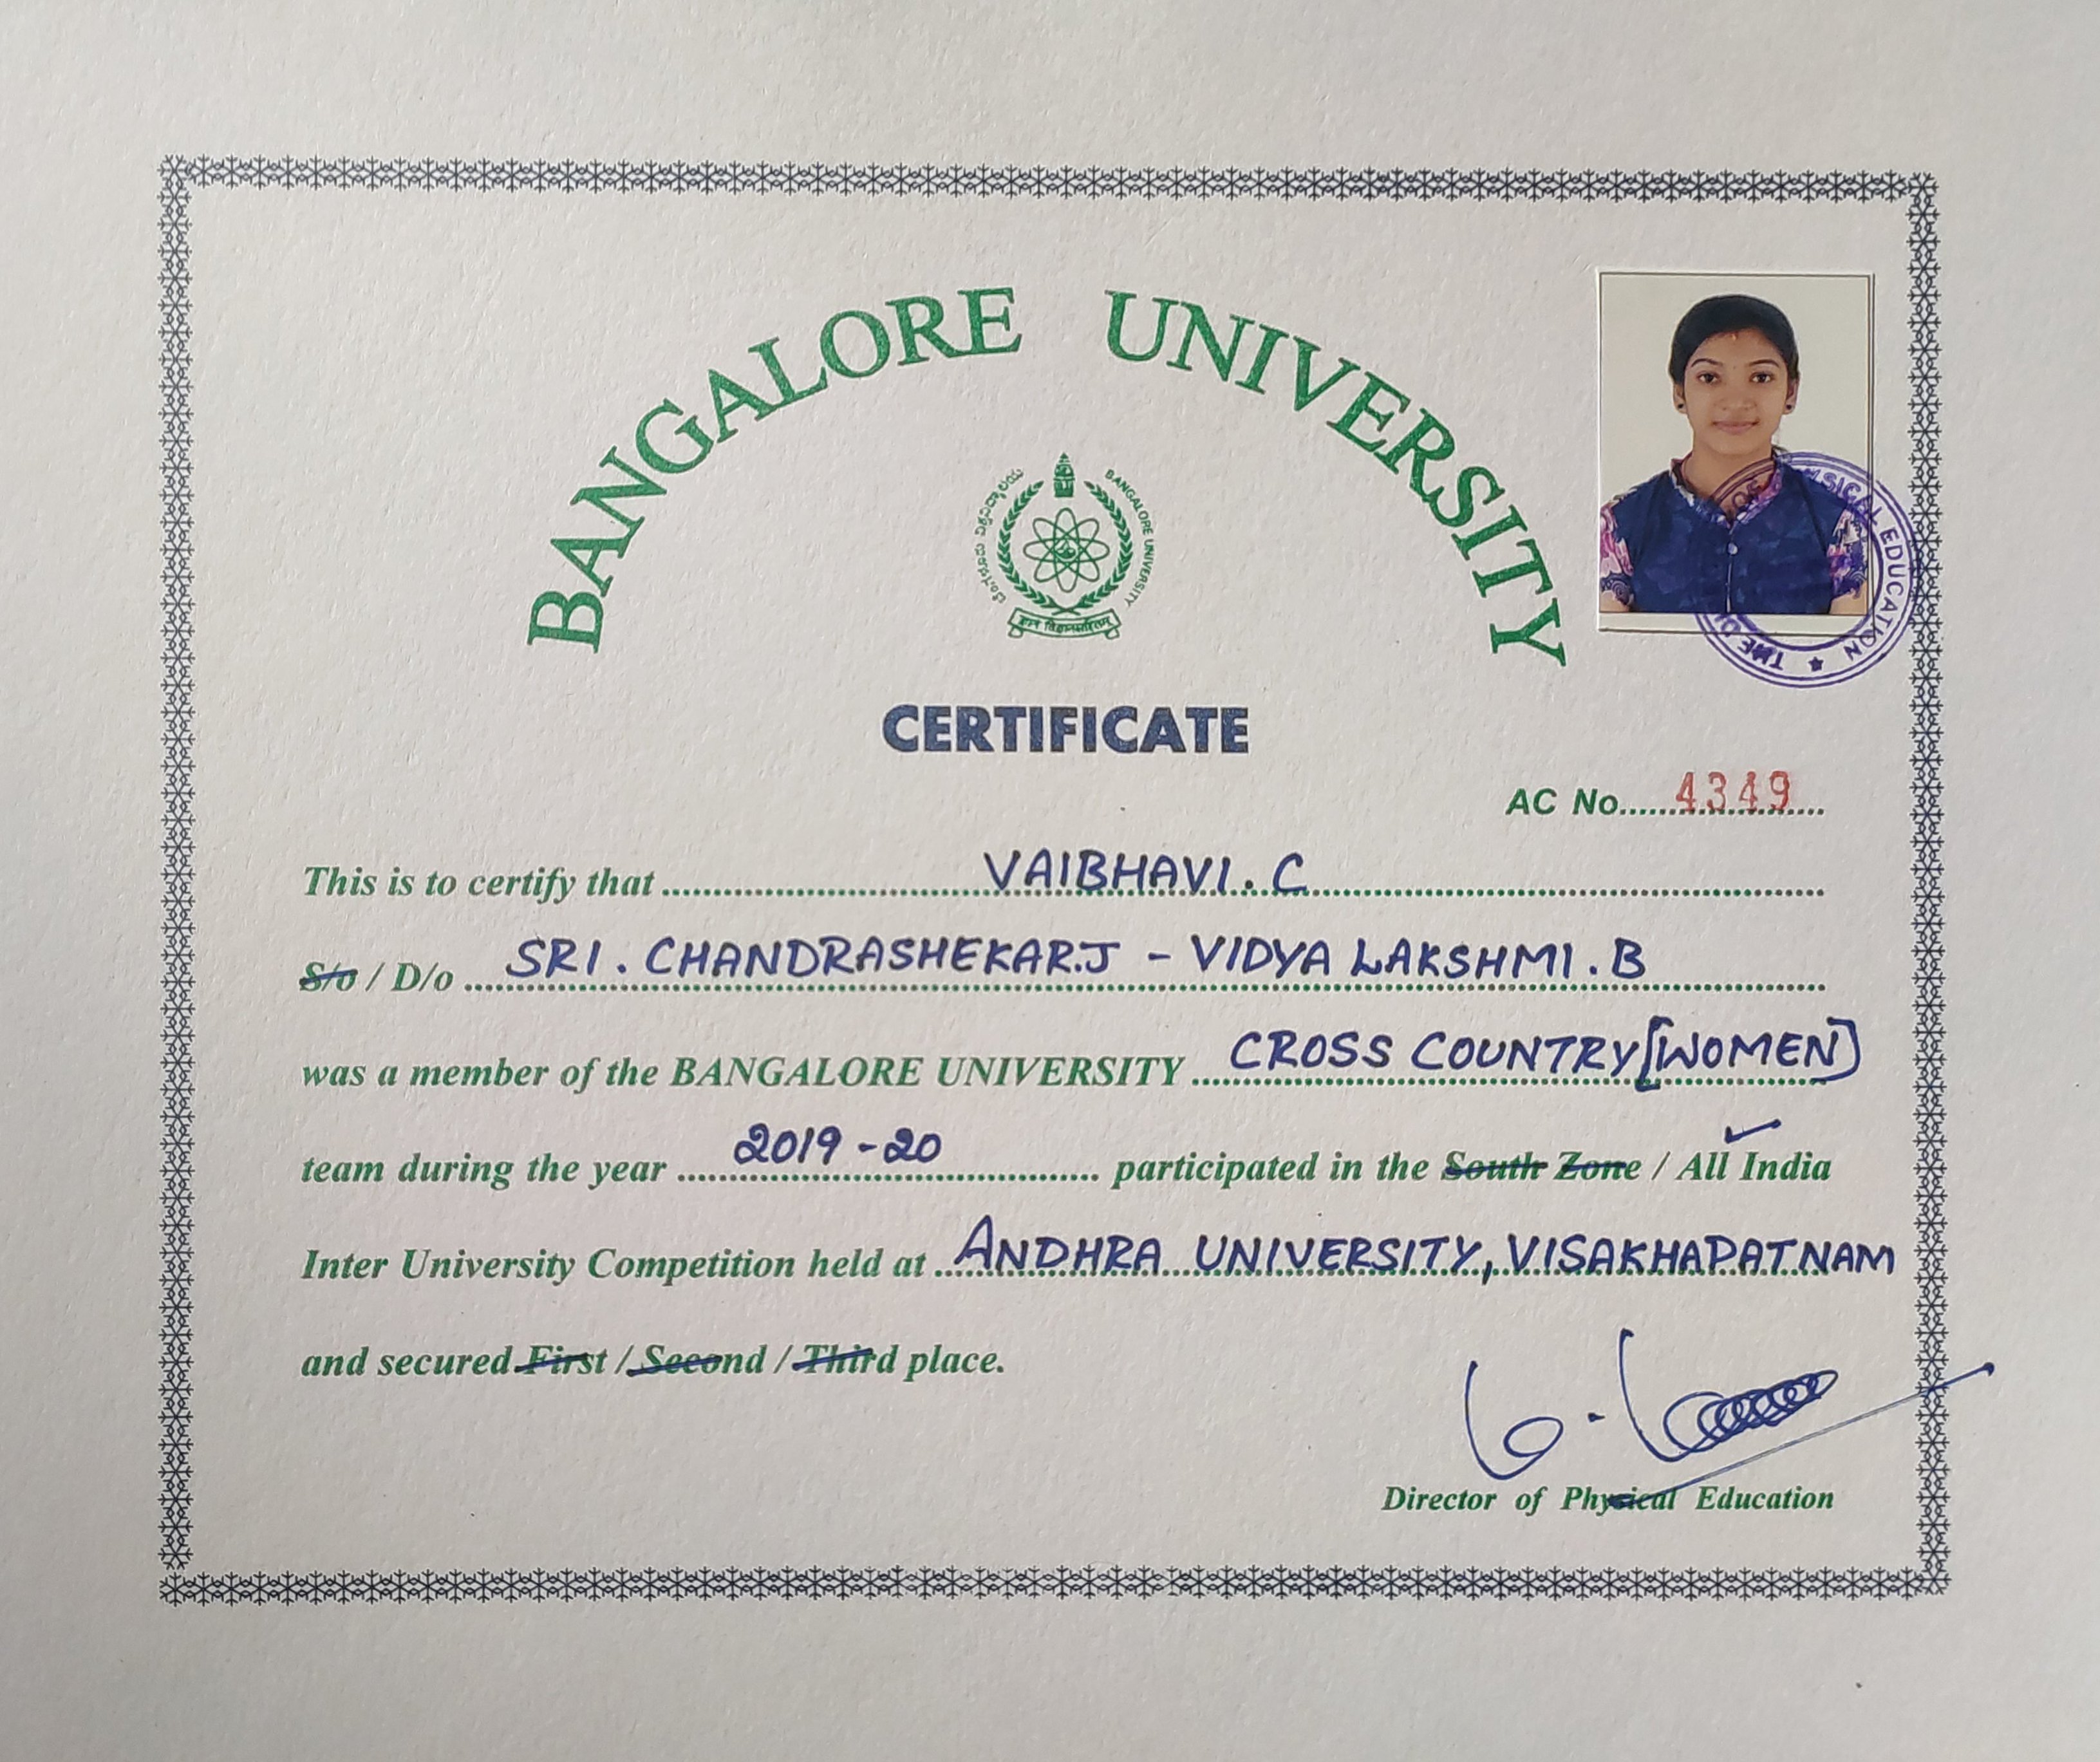 BANGALORE UNIVERSITY
ಬೆಂಗಳೂರು ವಿಶ್ವವಿದ್ಯಾಲಯ
BANGALORE UNIVERSITY
ज्ञानं विज्ञानसहितम्
PHYSICAL EDUCATION ★ THE
CERTIFICATE
AC No. 4349
This is to certify that VAIBHAVI. C
S/o / D/o SRI. CHANDRASHEKAR.J - VIDYA LAKSHMI. B
was a member of the BANGALORE UNIVERSITY CROSS COUNTRY [WOMEN]
team during the year 2019-20 participated in the South Zone / All India
Inter University Competition held at ANDHRA UNIVERSITY, VISAKHAPATNAM
and secured First / Second / Third place.
Director of Physical Education